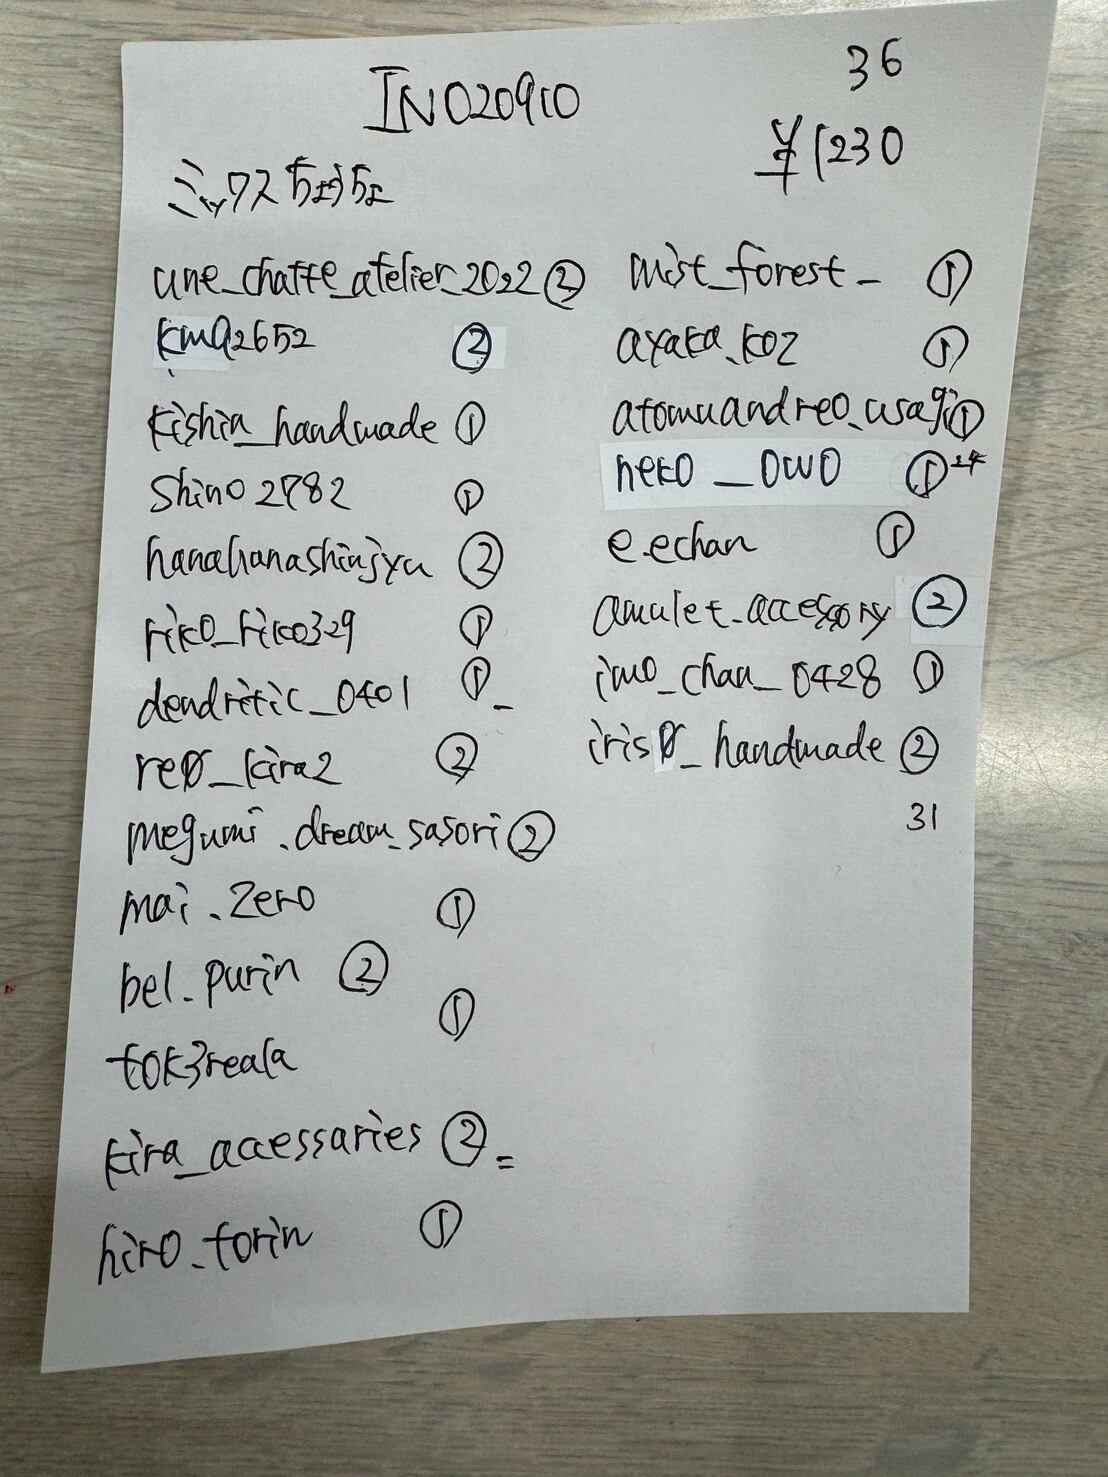 INO20910
36
¥1230
ミックスちょうちょ
une_chatte_atelier_2022 ②
kma2652 ②
kishin_handmade ①
Shino2782 ①
hanahanashinjyu ②
riko_riko329 ①
dendritic_0401 ①
re0_kira2 ②
megumi.dream_sasori ②
mai.zero ①
bel.purin ②
tok3reala ①
kira_accessaries ②
hiro_torin ①
mist_forest_ ①
ayaka.koz ①
atomuandreo_usagi ①
neko__owo ①
e.echan ①
amulet.accessory ②
imo_chan_0428 ①
iris0_handmade ②
31